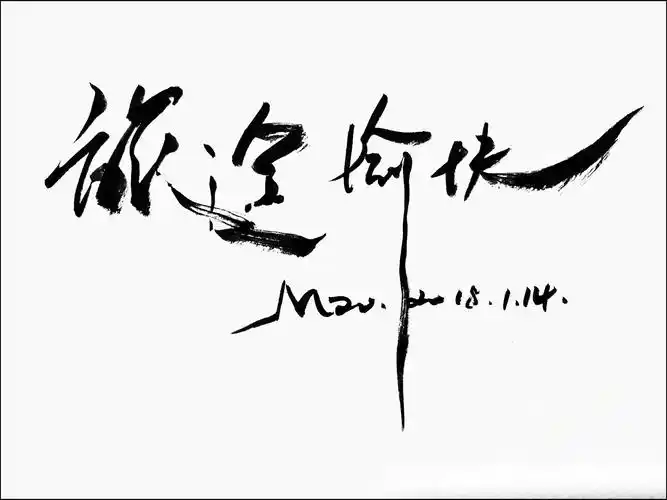 旅途愉快
Mao. 2018.1.14.